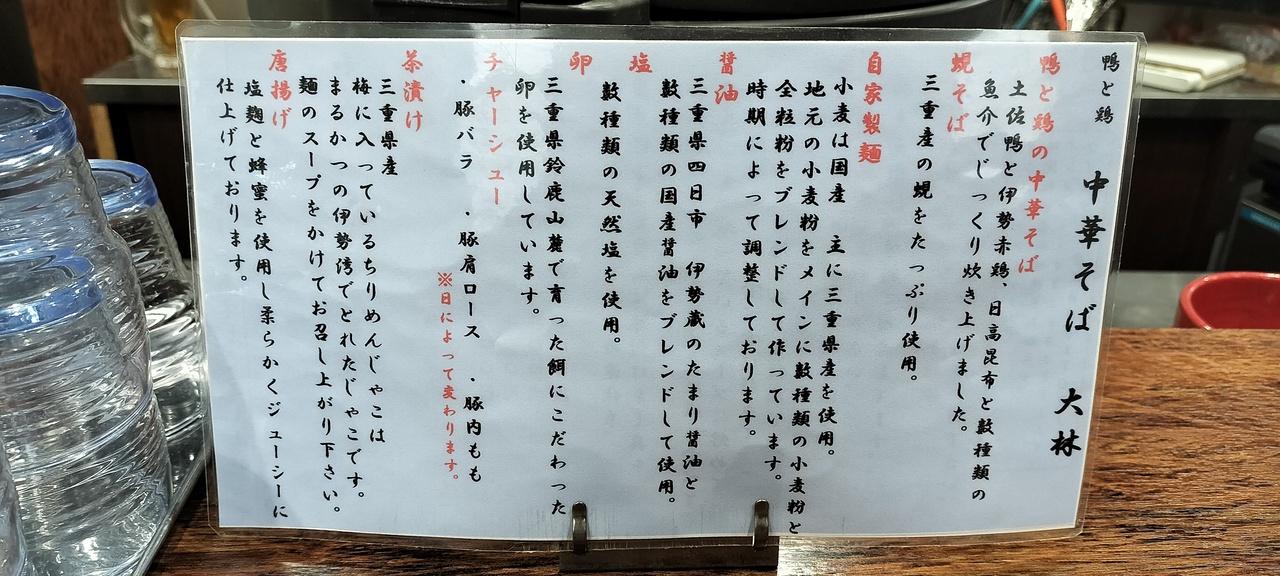 鴨と鶏
中華そば 大林
鴨と鶏の中華そば
土佐鴨と伊勢赤鶏、日高昆布と数種類の
魚介でじっくり炊き上げました。
蜆そば
三重産の蜆をたっぷり使用。
自家製麺
小麦は国産 主に三重県産を使用。
地元の小麦粉をメインに数種類の小麦粉と
全粒粉をブレンドして作っています。
時期によって調整しております。
醤油
三重県四日市 伊勢蔵のたまり醤油と
数種類の国産醤油をブレンドして使用。
塩
数種類の天然塩を使用。
卵
三重県鈴鹿山麓で育った餌にこだわった
卵を使用しています。
チャーシュー
・豚バラ ・豚肩ロース ・豚内もも
※日によって変わります。
茶漬け
三重県産
梅に入っているちりめんじゃこは
まるかつの伊勢湾でとれたじゃこです。
麺のスープをかけてお召し上がり下さい。
唐揚げ
塩麹と蜂蜜を使用し柔らかくジューシーに
仕上げております。